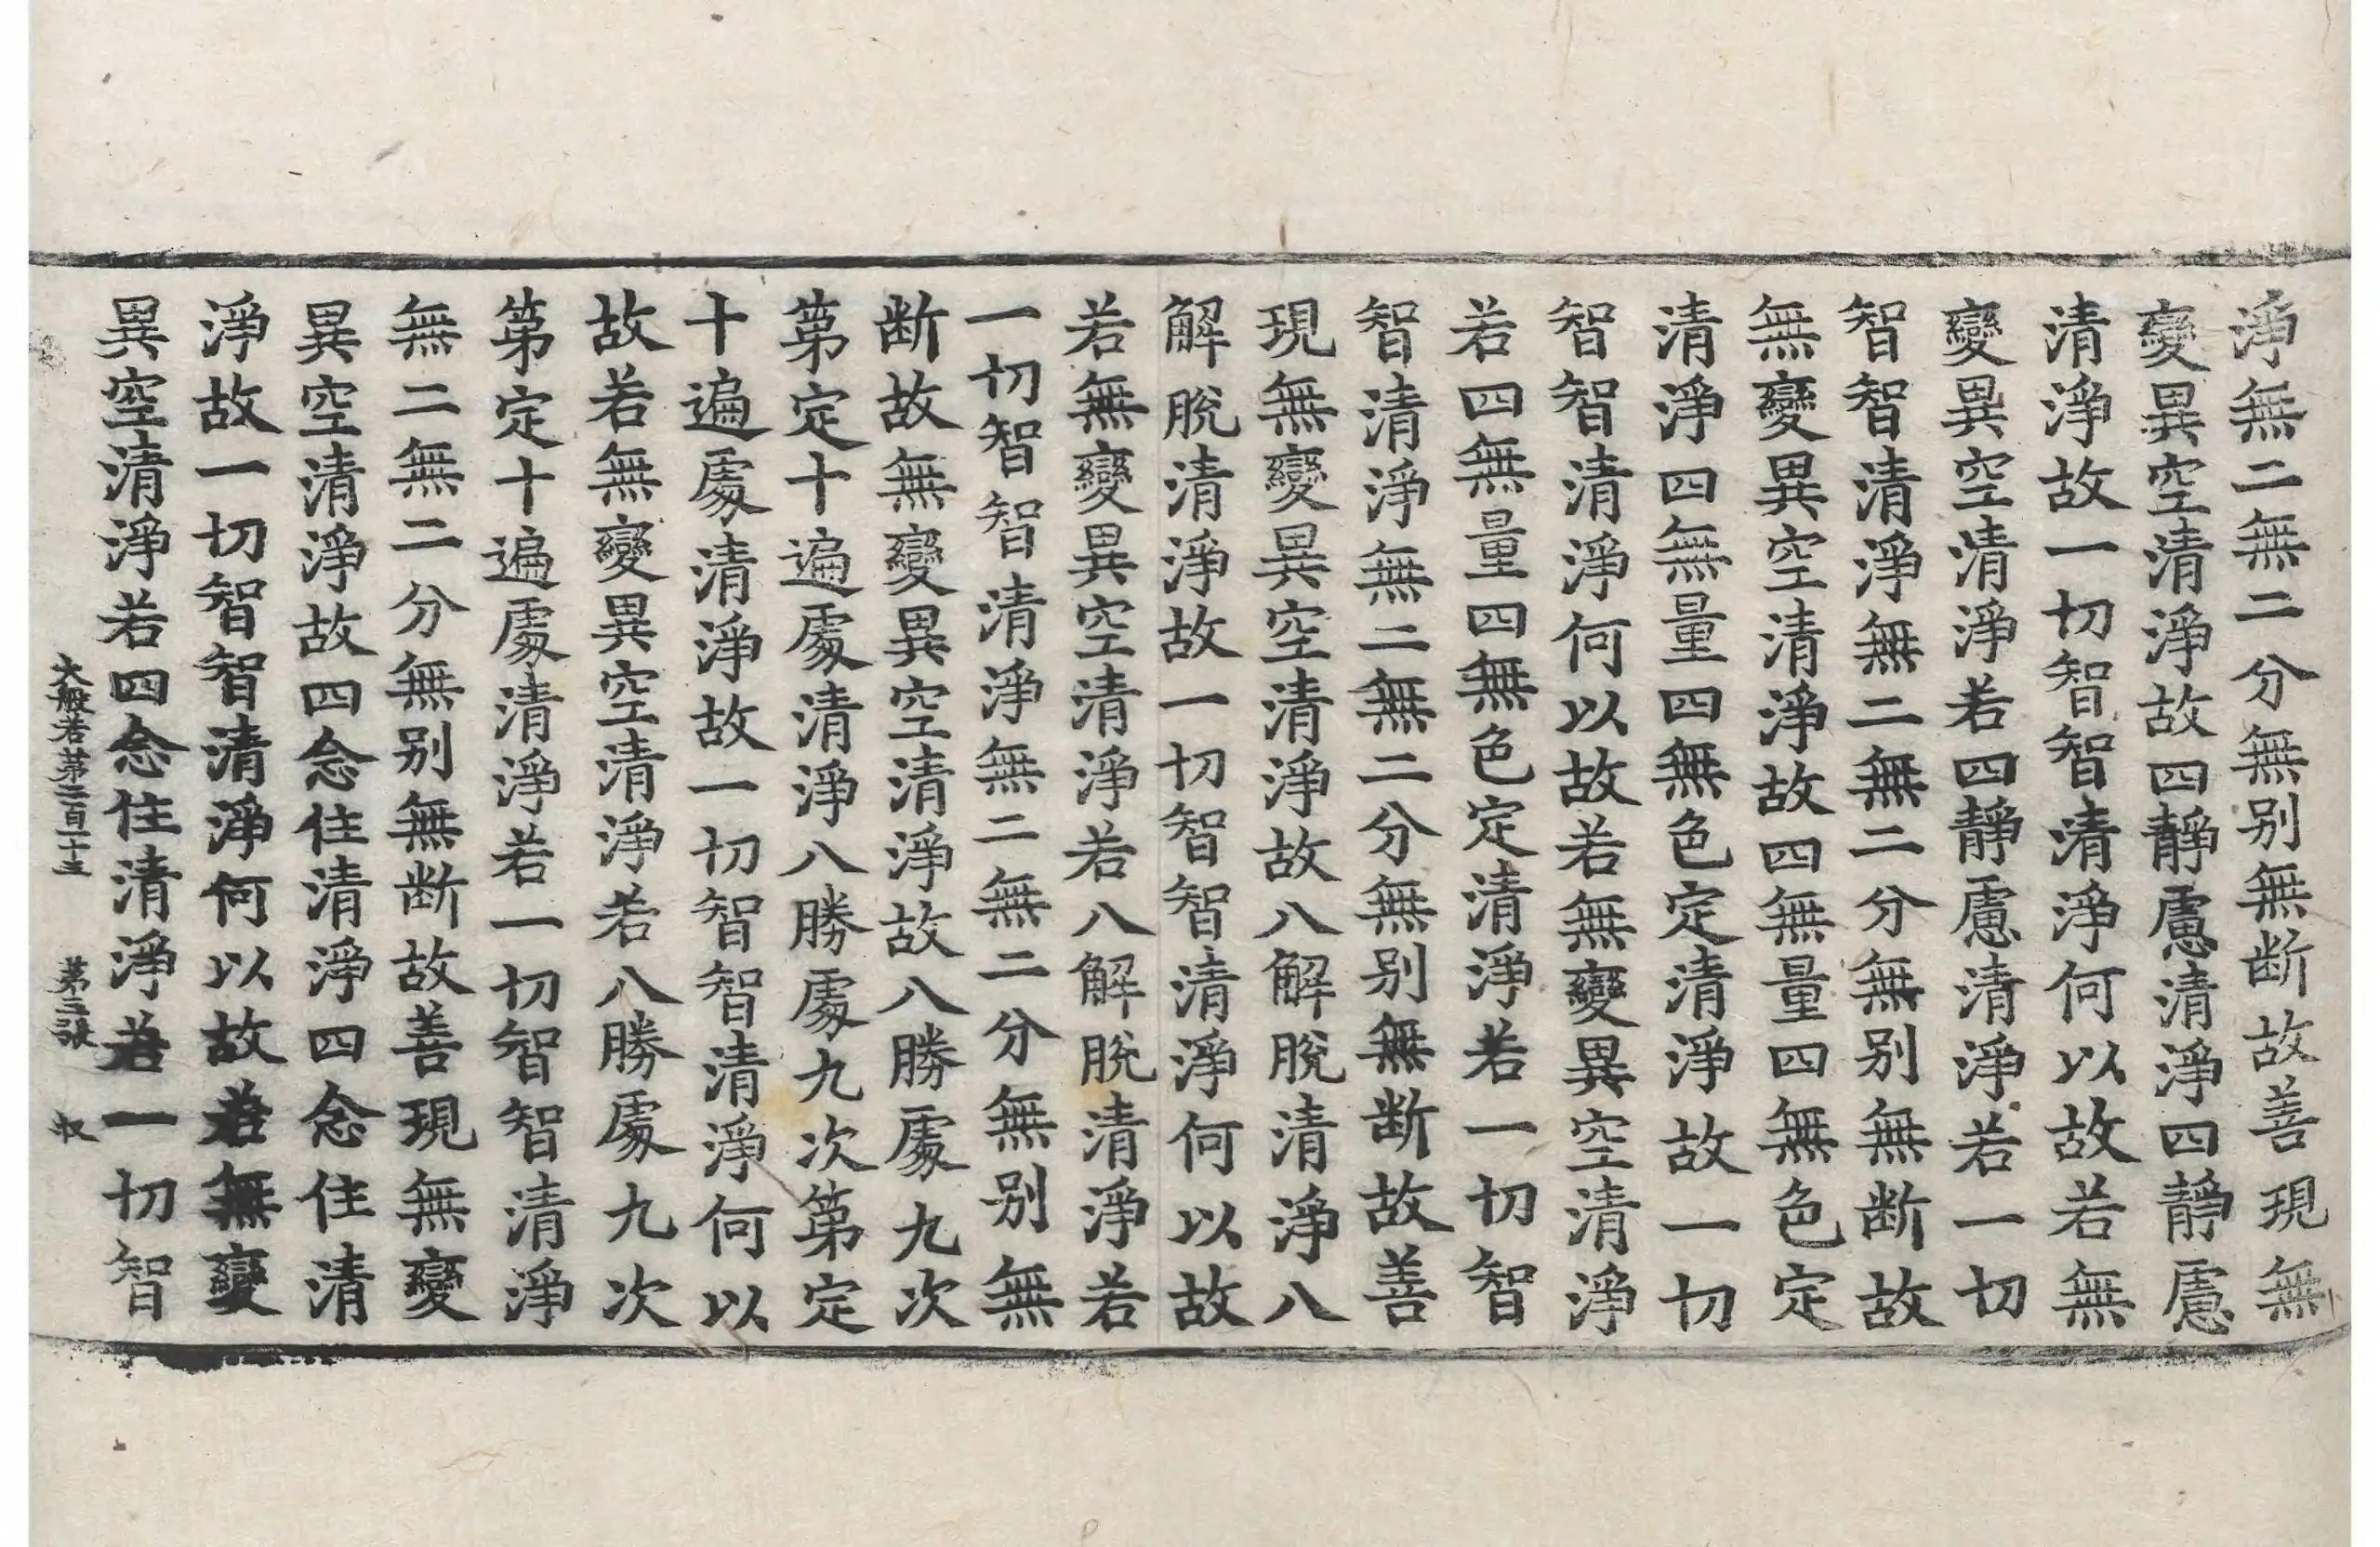 淨無二無二分無別無斷故善現無
變異空清淨故四靜慮清淨四靜慮
清淨故一切智智清淨何以故若無
變異空清淨若四靜慮清淨若一切
智智清淨無二無二分無別無斷故
無變異空清淨故四無量四無色定
清淨四無量四無色定清淨故一切
智智清淨何以故若無變異空清淨
若四無量四無色定清淨若一切智
智清淨無二無二分無別無断故善
現無變異空清淨故八解脫清淨八
解脫清淨故一切智智清淨何以故
若無變異空清淨若八解脫清淨若
一切智智清淨無二無二分無別無
断故無變異空清淨故八勝處九次
第定十遍處清淨八勝處九次第定
十遍處清淨故一切智智清淨何以
故若無變異空清淨若八勝處九次
第定十遍處清淨若一切智智清淨
無二無二分無別無断故善現無變
異空清淨故四念住清淨四念住清
淨故一切智智清淨何以故若無變
異空清淨若四念住清淨若一切智
大般若第二百一十三 第三張